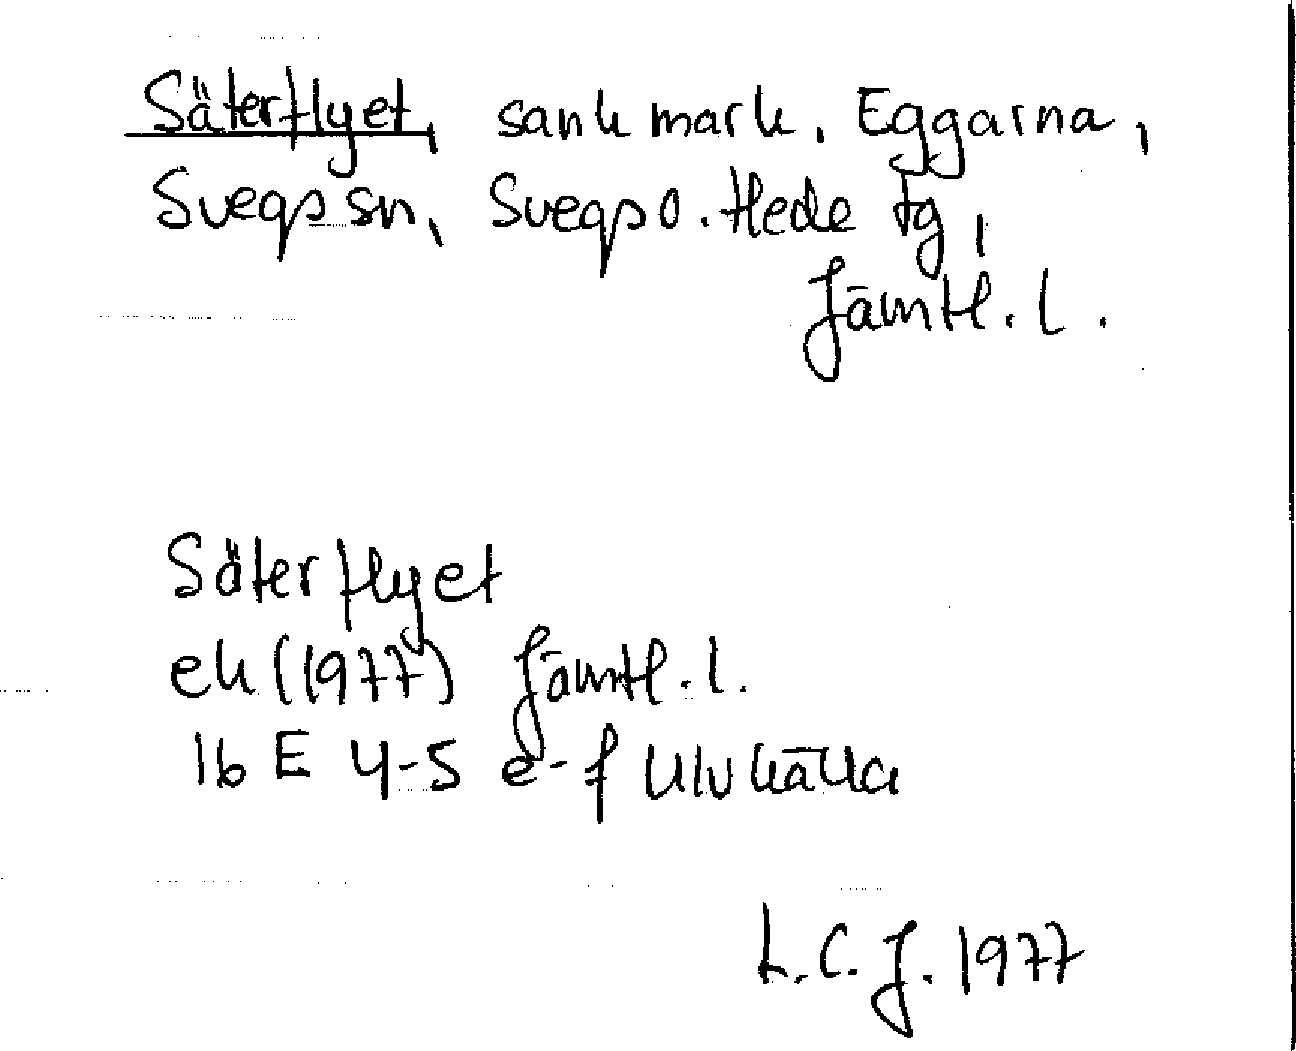 Säterflyet, sank mark, Eggarna,
Svegs sn, Svegs o. Hede tg,
Jämtl. l.
Säterflyet
ek (1977) Jämtl. l.
16 E 4-5 e-f Ulvkälla
L.C.J. 1977